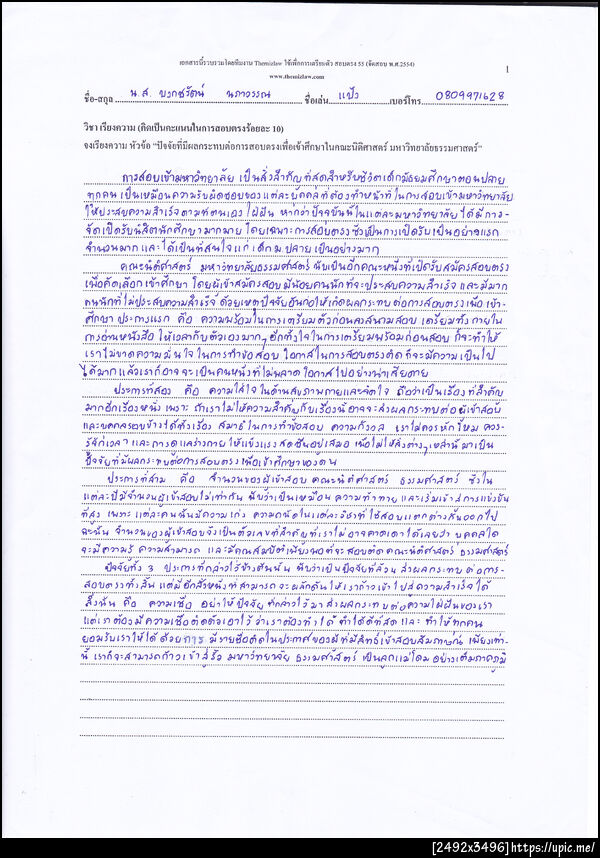 เอกสารนี้รวบรวมโดยทีมงาน Themizlaw ใช้เพื่อการเตรียมตัว สอบตรง 55 (จัดสอบ พ.ศ.2554)
www.themizlaw.com
1
ชื่อ-สกุล น.ส. นภาวรรณ ชื่อเล่น แป้ง เบอร์โทร 0809971628
วิชา เรียงความ (คิดเป็นคะแนนในการสอบตรงร้อยละ 10)
จงเรียงความ หัวข้อ "ปัจจัยที่มีผลกระทบต่อการสอบตรงเพื่อเข้าศึกษาในคณะนิติศาสตร์ มหาวิทยาลัยธรรมศาสตร์"
การสอบเข้ามหาวิทยาลัย เป็นสิ่งสำคัญที่สุดสำหรับชีวิตเด็กมัธยมศึกษาตอนปลาย
ทุกคน เป็นเหมือนความรับผิดชอบของแต่ละบุคคลที่ต้องทำหน้าที่ในการสอบเข้ามหาวิทยาลัย
ให้ประสบความสำเร็จตามที่ตนเองใฝ่ฝัน หากว่าปัจจุบันนี้ในแต่ละมหาวิทยาลัยได้มีการ-
จัดเปิดรับนิสิตนักศึกษามากมาย โดยเฉพาะการสอบตรง ซึ่งเป็นการเปิดรับเป็นอย่างแรก
จำนวนมาก และได้เป็นที่สนใจแก่เด็กม.ปลายเป็นอย่างมาก
คณะนิติศาสตร์ มหาวิทยาลัยธรรมศาสตร์ นับเป็นอีกคณะหนึ่งที่เปิดรับสมัครสอบตรง
เพื่อคัดเลือกเข้าศึกษา โดยผู้เข้าสมัครสอบ มีน้อยคนนักที่จะประสบความสำเร็จ และมีมาก
คนนักที่ไม่ประสบความสำเร็จ ด้วยเหตุปัจจัยอันก่อให้เกิดผลกระทบต่อการสอบตรงเพื่อเข้า-
ศึกษา ประการแรก คือ ความพร้อมในการเตรียมตัวก่อนลงสนามสอบ เตรียมทั้งภายใน
การอ่านหนังสือ ให้เวลากับตัวเองมากๆ อีกทั้งใจในการเตรียมพร้อมก่อนสอบ ก็จะทำให้
เราไม่ขาดความมั่นใจ ในการทำข้อสอบ โอกาสในการสอบตรงติดก็จะมีความเป็นไป
ได้มาก แล้วเราก็อาจจะเป็นคนหนึ่งที่ไม่พลาดโอกาสไปอย่างน่าเสียดาย
ประการที่สอง คือ ความใส่ใจในด้านสุขภาพกายและจิตใจ ถือว่าเป็นเรื่องที่สำคัญ
มากอีกเรื่องหนึ่ง เพราะ ถ้าเราไม่ให้ความสำคัญกับเรื่องนี้อาจจะส่งผลกระทบต่อผู้เข้าสอบ
และบุคคลรอบข้างได้ทั้งเรื่อง สมาธิในการทำข้อสอบ ความกังวล เราไม่ควรหักโหม ควร
รู้จักเวลา และการดูแลร่างกาย ให้แข็งแรงสดชื่นอยู่เสมอ เพื่อไม่ให้สิ่งต่างๆ เหล่านี้มาเป็น
ปัจจัยที่มีผลกระทบต่อการสอบตรงเพื่อเข้าศึกษาของตน
ประการที่สาม คือ จำนวนของผู้เข้าสอบ คณะนิติศาสตร์ ธรรมศาสตร์ ซึ่งใน
แต่ละปีมีจำนวนผู้เข้าสอบไม่เท่ากัน นับว่าเป็นเหมือน ความท้าทาย และเริ่มเข้าสู่การแข่งขัน
ที่สูง เพราะ แต่ละคนนั้นมีความเก่ง ความถนัดในแต่ละวิชาที่ใช้สอบแตกต่างกันออกไป
ฉะนั้น จำนวนของผู้เข้าสอบจึงเป็นตัวเลขที่สำคัญที่เราไม่อาจคาดเดาได้เลยว่า บุคคลใด
จะมีความรู้ ความสามารถ และมีคุณสมบัติเพียงพอที่จะสอบติด คณะนิติศาสตร์ ธรรมศาสตร์
ปัจจัยทั้ง 3 ประการที่กล่าวไว้ข้างต้นนั้น นับว่าเป็นปัจจัยที่ล้วน ส่งผลกระทบต่อการ-
สอบตรงทั้งสิ้น แต่มีอีกสิ่งหนึ่งที่สามารถจะผลักดันให้เราก้าวเข้าไปสู่ความสำเร็จได้
สิ่งนั้น คือ ความเชื่อ อย่าให้ปัจจัยที่กล่าวไว้มาส่งผลกระทบต่อความใฝ่ฝันของเรา
แต่เราต้องมีความเชื่อติดตัวเอาไว้ ว่าเราต้องทำได้ ทำได้ดีที่สุด และ ทำให้ทุกคน
ยอมรับเราให้ได้ ด้วยการ มีรายชื่อติดในประกาศของผู้ที่มีสิทธิ์เข้าสอบสัมภาษณ์ เพียงเท่า-
นี้ เราก็จะสามารถก้าวเข้าสู่รั้ว มหาวิทยาลัย ธรรมศาสตร์ เป็นลูกแม่โดม อย่างเต็มภาคภูมิ
[2492x3496]https://upic.me/